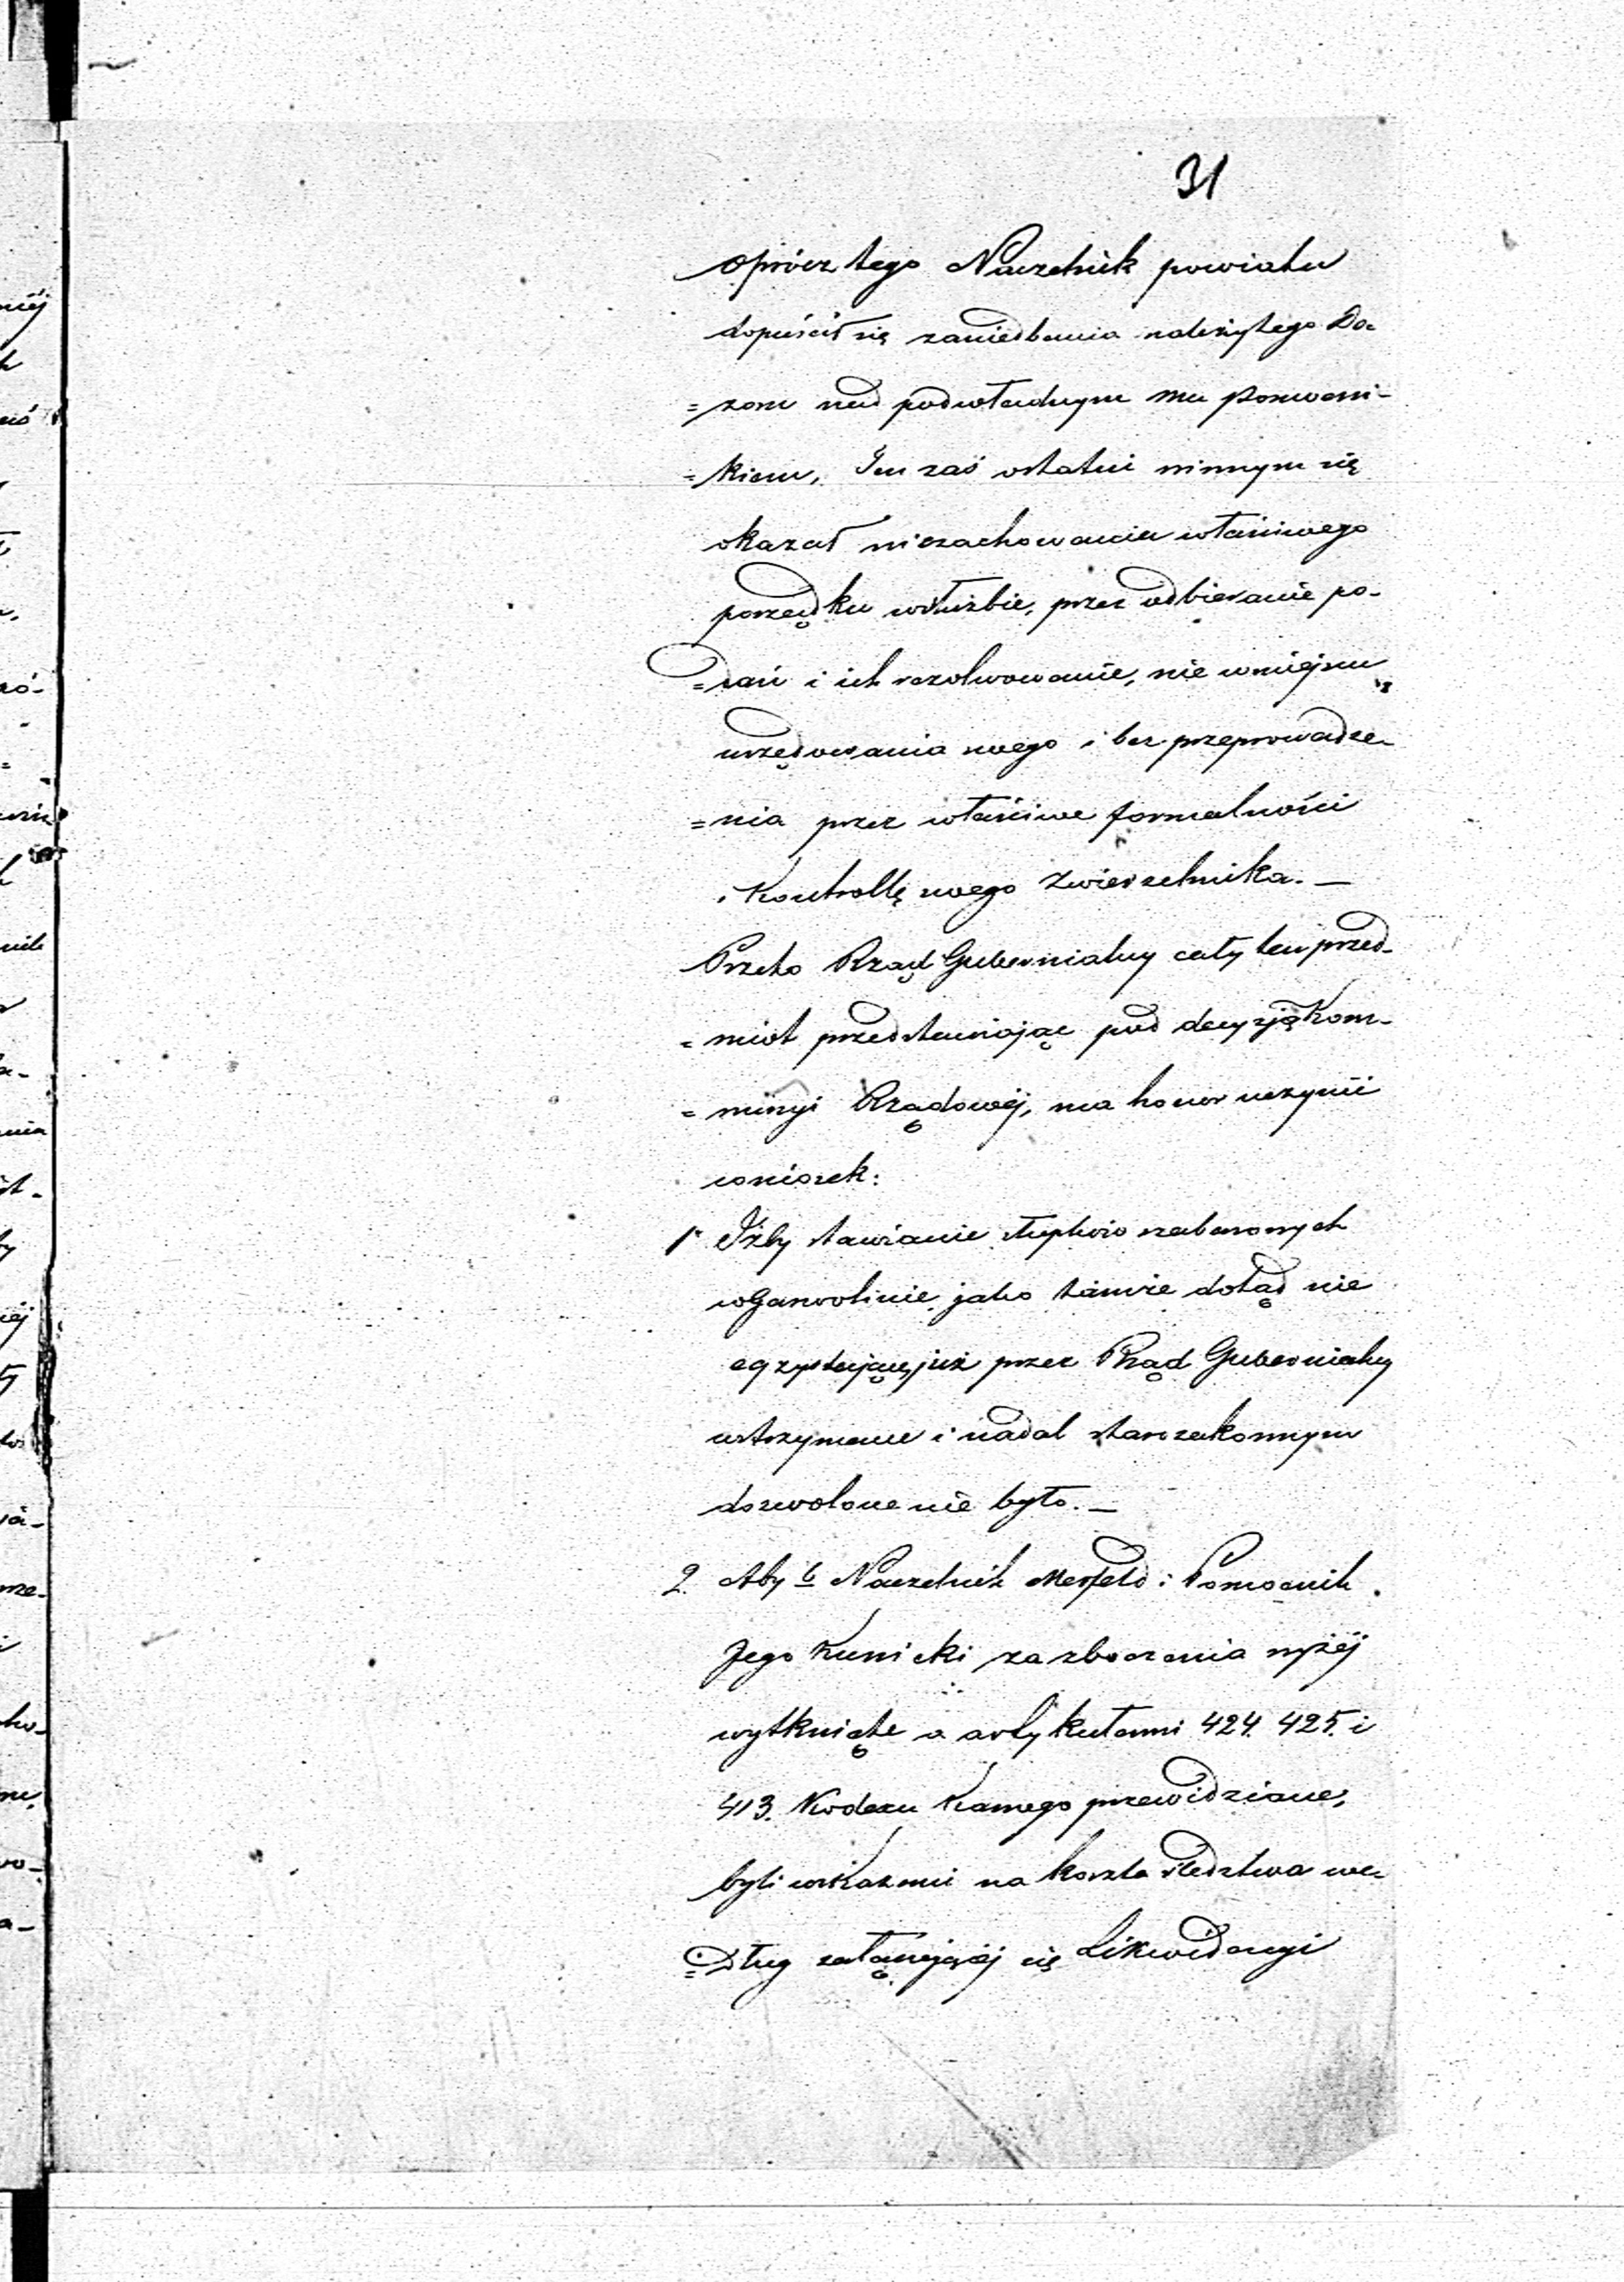 31
oprócz tego Naczelnik powiatu
dopuścił się zaniedbania należytego Do-
=zoru nad podwładnym mu Pomocni-
=kiem, Ten zaś ostatni winnym się
okazał niezachowania właściwego
porządku w służbie, przez odbieranie po-
=dań i ich rezolwowanie, nie w miejscu
urzędowania swego i bez przeprowadze-
=nia przez właściwe formalności
i Kontrollę swego Zwierzchnika. —
Przeto Rząd Gubernialny cały ten przed-
=miot przedstawiając pod decyzją Kom-
=missyi Rządowéj, ma honor uczynić
wniosek:
1° Iżby stawianie słupków szabasowych
w Garwolinie, jako tamże dotąd nie
egzystujące, już przez Rząd Gubernialny
wstrzymane i nadal starozakonnym
dozwolone nie było. —
2. Aby b Naczelnik Merfeld i Pomocnik
Jego Kunicki za zboczenia wyżéj
wytknięte a artykułami 424. 425. i
413. Kodexu Karnego przewidziane,
byli wskazani na koszta śledztwa we-
=dług załączającéj się Likwidacyi